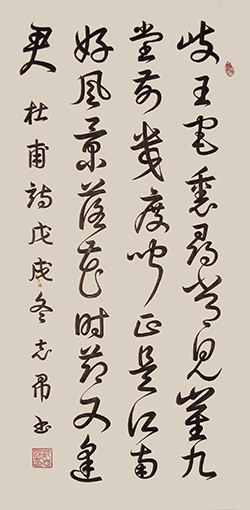 歧王宅裏尋常見崔九
堂前幾度聞正是江南
好風景落花時節又逢
君
杜甫詩戊戌冬志書